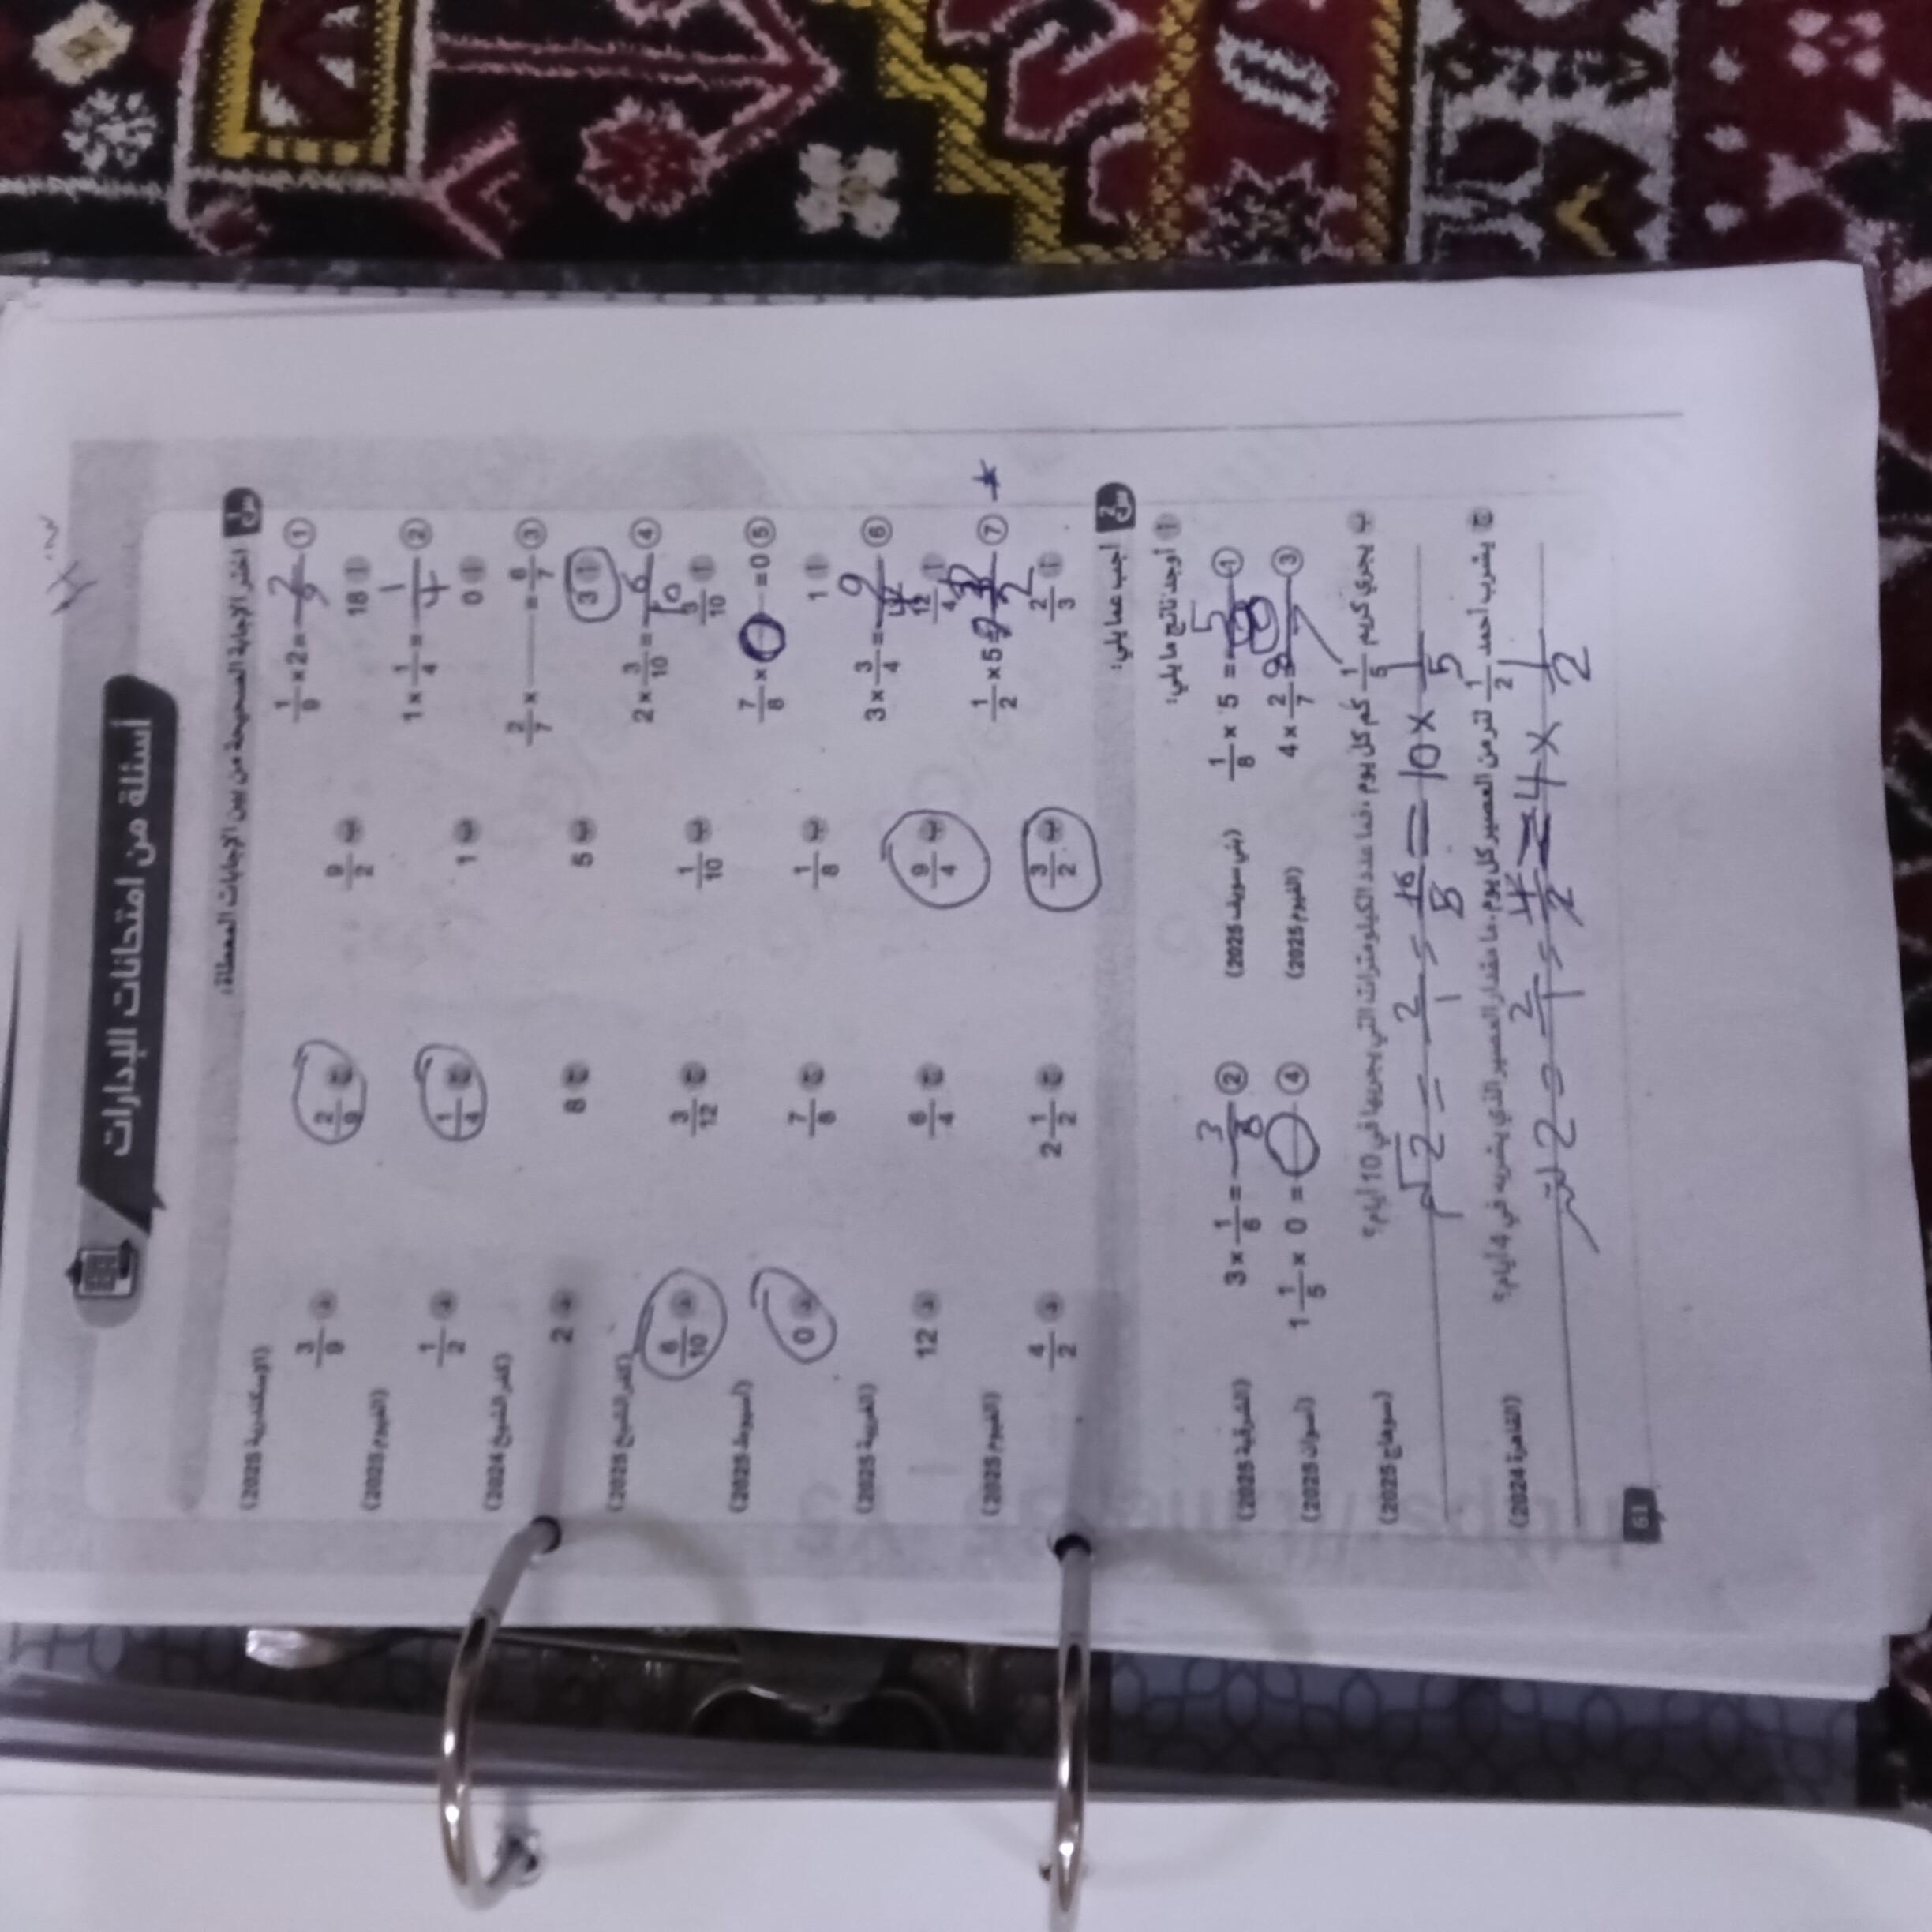 أسئلة من امتحانات الإدارات
س1 اختر الإجابة الصحيحة من بين الإجابات المعطاة:
① 1/9 × 2 = 2/9 (الإسكندرية 2025)
أ 18 ب 9/2 ج 2/9 د 3/9
② 1 × 1/4 = 1/4 (الفيوم 2025)
أ 0 ب 1 ج 1/4 د 1/2
③ 2/7 × = 6/7 (كفر الشيخ 2024)
أ 3 ب 5 ج 8 د 2
④ 2 × 3/10 = 6/10 (كفر الشيخ 2025)
أ 3/10 ب 1/10 ج 3/12 د 6/10
⑤ 7/8 × 0 = 0 (أسيوط 2025)
أ 1 ب 1/8 ج 7/8 د 0
⑥ 3 × 3/4 = 9/4 (الغربية 2025)
أ 12/4 ب 9/4 ج 6/4 د 12
⑦ 1/2 × 5 = (الفيوم 2025)
أ 2/3 ب 3/2 ج 2 1/2 د 4/2
س2 أجب عما يلي:
أ أوجد ناتج ما يلي:
① 1/8 × 5 = 5/8 (بني سويف 2025) ② 3 × 1/6 = 3/8 (الشرقية 2025)
③ 4 × 2/7 = 8/7 (الفيوم 2025) ④ 1 1/5 × 0 = 0 (أسوان 2025)
ب يجري كريم 1/5 كم كل يوم، فما عدد الكيلومترات التي يجريها في 10 أيام؟ (سوهاج 2025)
10 × 1/5 = 10/5 = 2/1 = 2 كم
ج يشرب أحمد 1/2 لتر من العصير كل يوم، ما مقدار العصير الذي يشربه في 4 أيام؟ (القاهرة 2024)
4 × 1/2 = 4/2 = 2/1 = 2 لتر
61